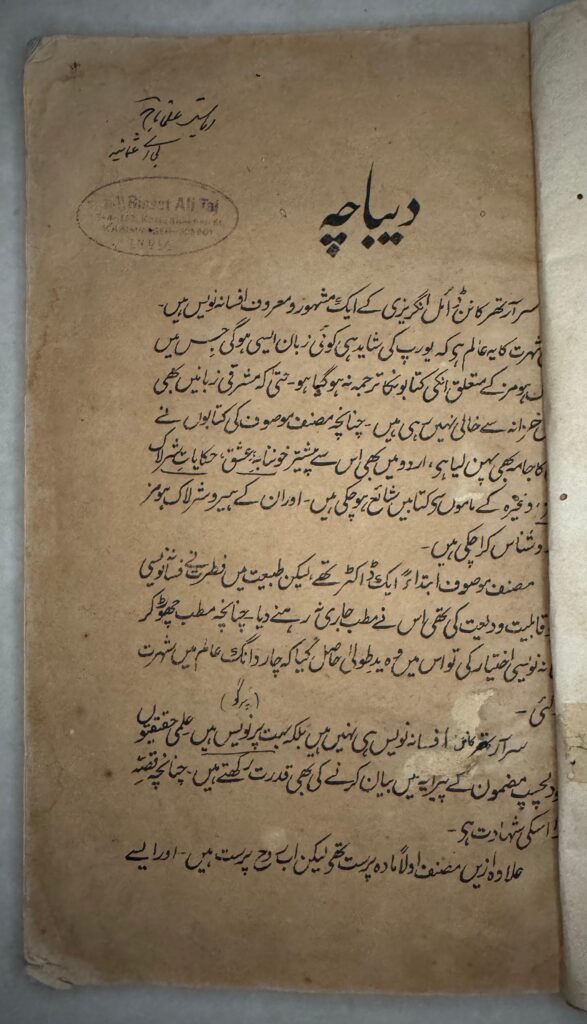 ریاست علی تاج
بی اے عثمانیہ
Riasat Ali Taj
INDIA
دیباچہ
سر آرتھر کانن ڈائل انگریزی کے ایک مشہور و معروف افسانہ نویس ہیں۔
شہرت کا یہ عالم ہی کہ یورپ کی شاید ہی کوئی زبان ایسی ہوگی جس میں
ہومز کے متعلق انکی کتابونکا ترجمہ نہ ہو گیا ہو۔ حتیٰ کہ مشرقی زبانیں بھی
خزانہ سے خالی نہیں رہی ہیں۔ چنانچہ مصنف موصوف کی کتابوں نے
کا جامہ بھی پہن لیا ہی، اردو میں بھی اس سے پیشتر خوننابۂ عشق، حکایات شرلاک
وغیرہ کے ناموں کی کتابیں شائع ہو چکی ہیں۔ اور ان کے ہیرو شرلاک ہومز
روشناس کرا چکی ہیں۔
مصنف موصوف ابتداءً ایک ڈاکٹر تھے، لیکن طبیعت میں فطرت نے فسانہ نویسی
قابلیت ودیعت کی تھی اس نے مطب جاری نہ رہنے دیا چنانچہ مطب چھوڑ کر
نویسی اختیار کی تو اس میں وہ ید طولیٰ حاصل کیا کہ چار دانگ عالم میں شہرت
گئی۔
(پرگو)
سر آرتھر کانن افسانہ نویس ہی نہیں ہیں بلکہ بہت پرنویس ہیں علمی حقیقتوں
دلچسپ مضمون کے پیرایہ میں بیان کرنے کی بھی قدرت رکھتے ہیں۔ چنانچہ قصّہ
اسکی شہادت ہی۔
علاوہ ازیں مصنف اولاً مادہ پرست تھی لیکن اب روح پرست ہیں۔ اور ایسے